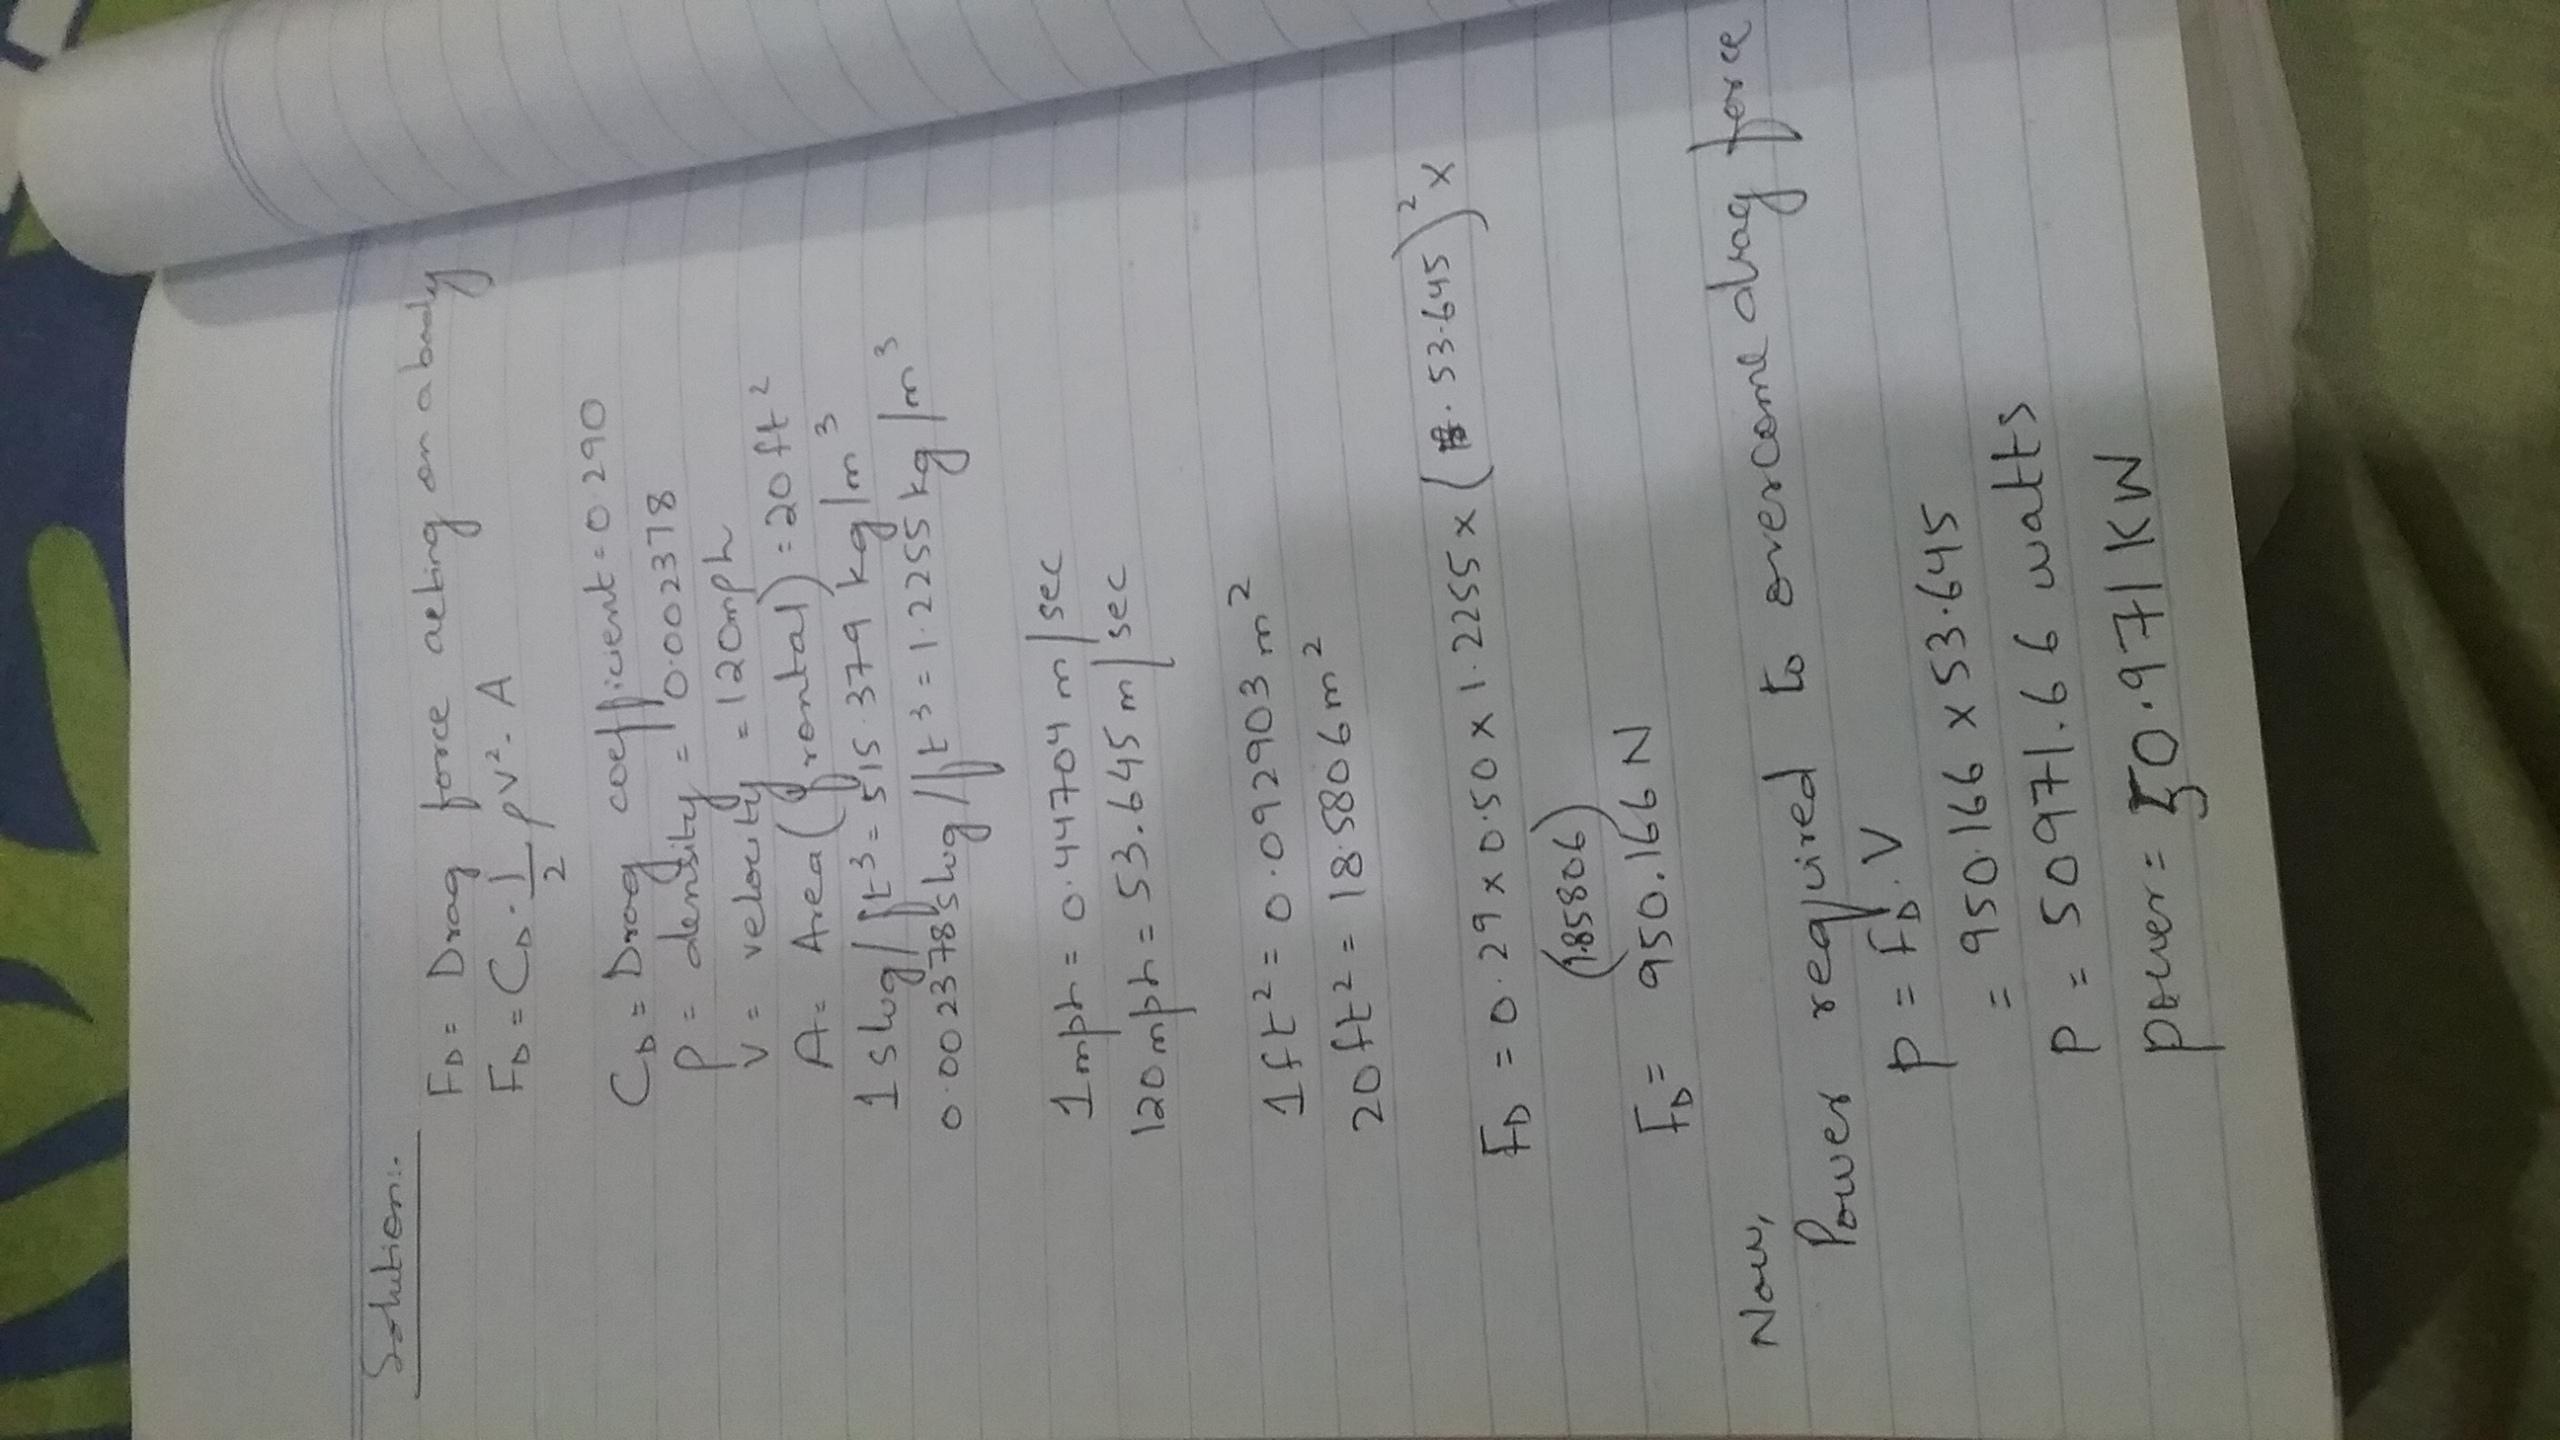 Solution:-
F_D = Drag force acting on a body
F_D = C_D · 1/2 ρV² · A
C_D = Drag coefficient = 0.290
ρ = density = 0.002378
V = velocity = 120mph
A = Area (frontal) = 20 ft²
1 slug/ft³ = 515.379 kg/m³
0.002378 slug/ft³ = 1.2255 kg/m³
1 mph = 0.44704 m/sec
120 mph = 53.645 m/sec
1 ft² = 0.092903 m²
20 ft² = 18.5806 m²
F_D = 0.29 x 0.50 x 1.2255 x (53.645)² x
(1.85806)
F_D = 950.166 N
Now,
Power required to overcome drag force
P = F_D · V
= 950.166 x 53.645
P = 50971.66 watts
Power = 50.971 KW